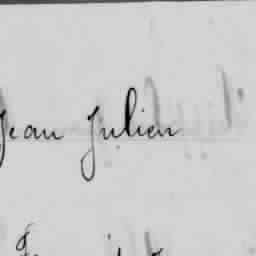 Jean Julien